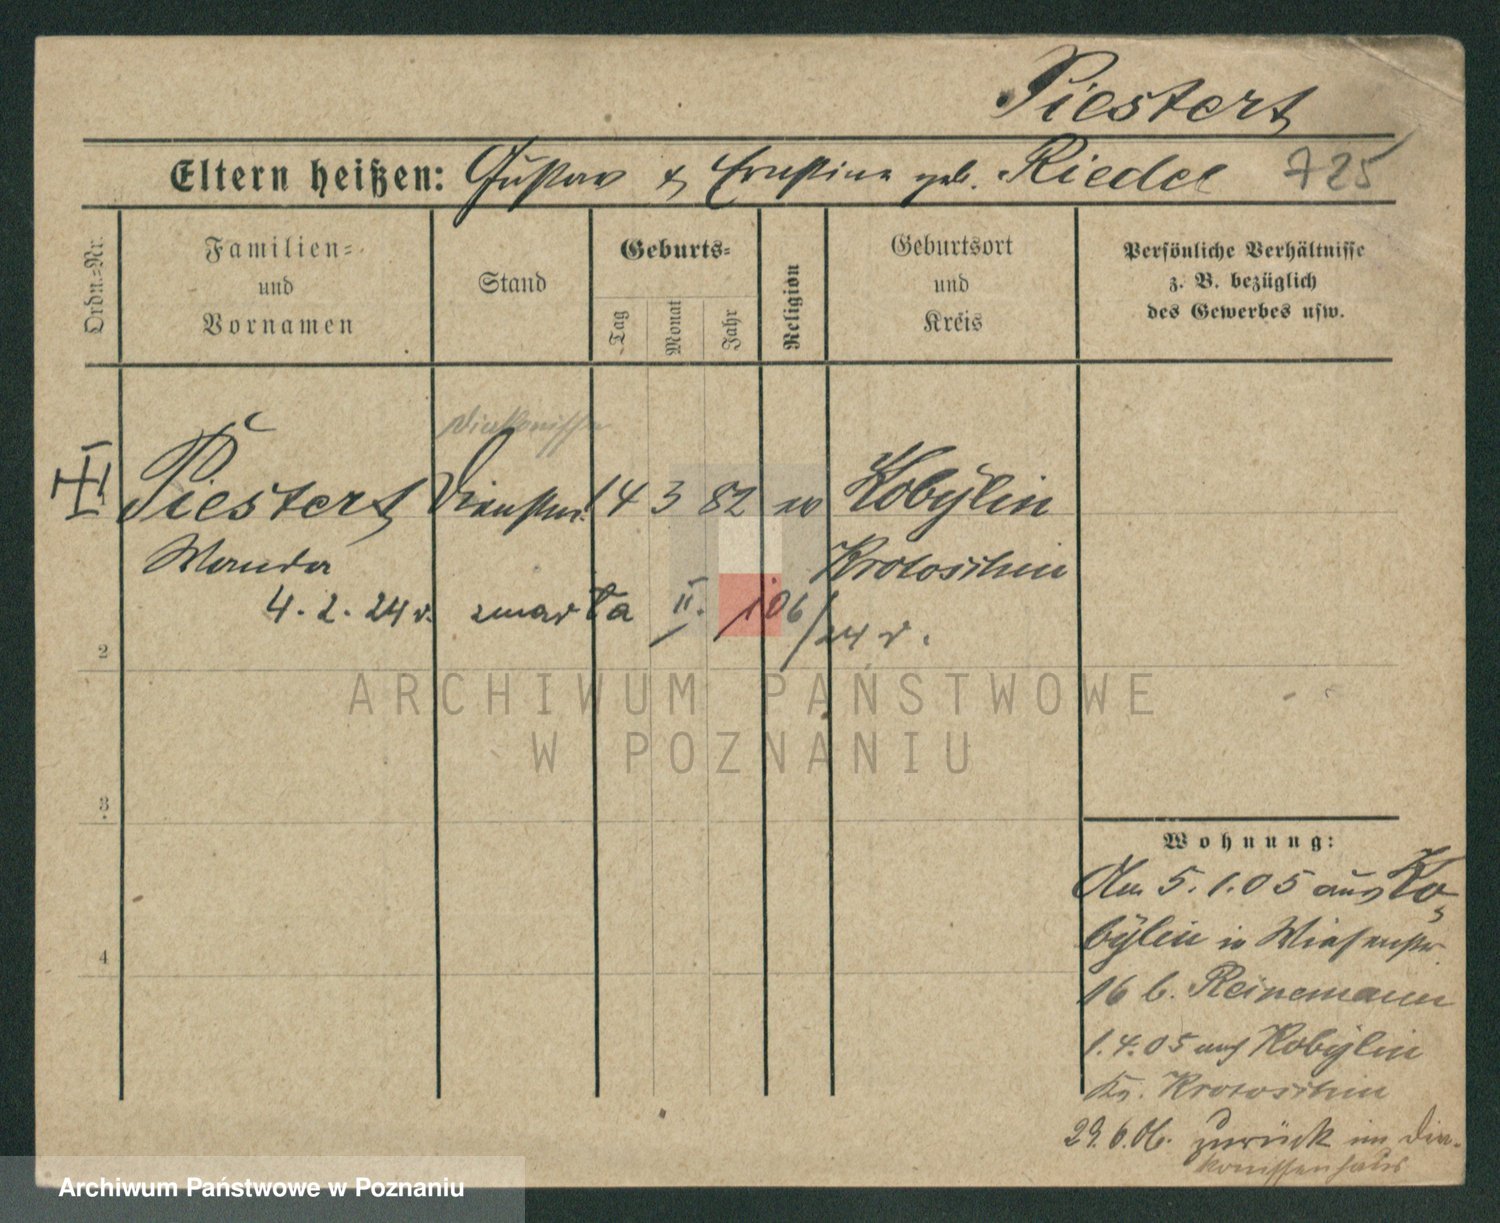 Piestert
Eltern heißen: Gustav & Ernstine geb. Riedel 725
Ordn.=Nr.
Familien=
und
Vornamen
Stand
Geburts=
Tag
Monat
Jahr
Religion
Geburtsort
und
Kreis
Persönliche Verhältnisse
z. B. bezüglich
des Gewerbes usw.
Diakonisse
Piestert Dienstm. 14 3 82 ev Kobylin
Wanda Krotoschin
4. 2. 24 r. zmarła II. 106/24 r.
2
3
4
ARCHIWUM PAŃSTWOWE
W POZNANIU
Wohnung:
Am 5.1.05 aus Ko-
bylin in Wiesenstr.
16 b. Reinemann
1.4.05 nach Kobylin
Kr. Krotoschin
29.6.06. zurück im Dia-
konissenhaus
Archiwum Państwowe w Poznaniu